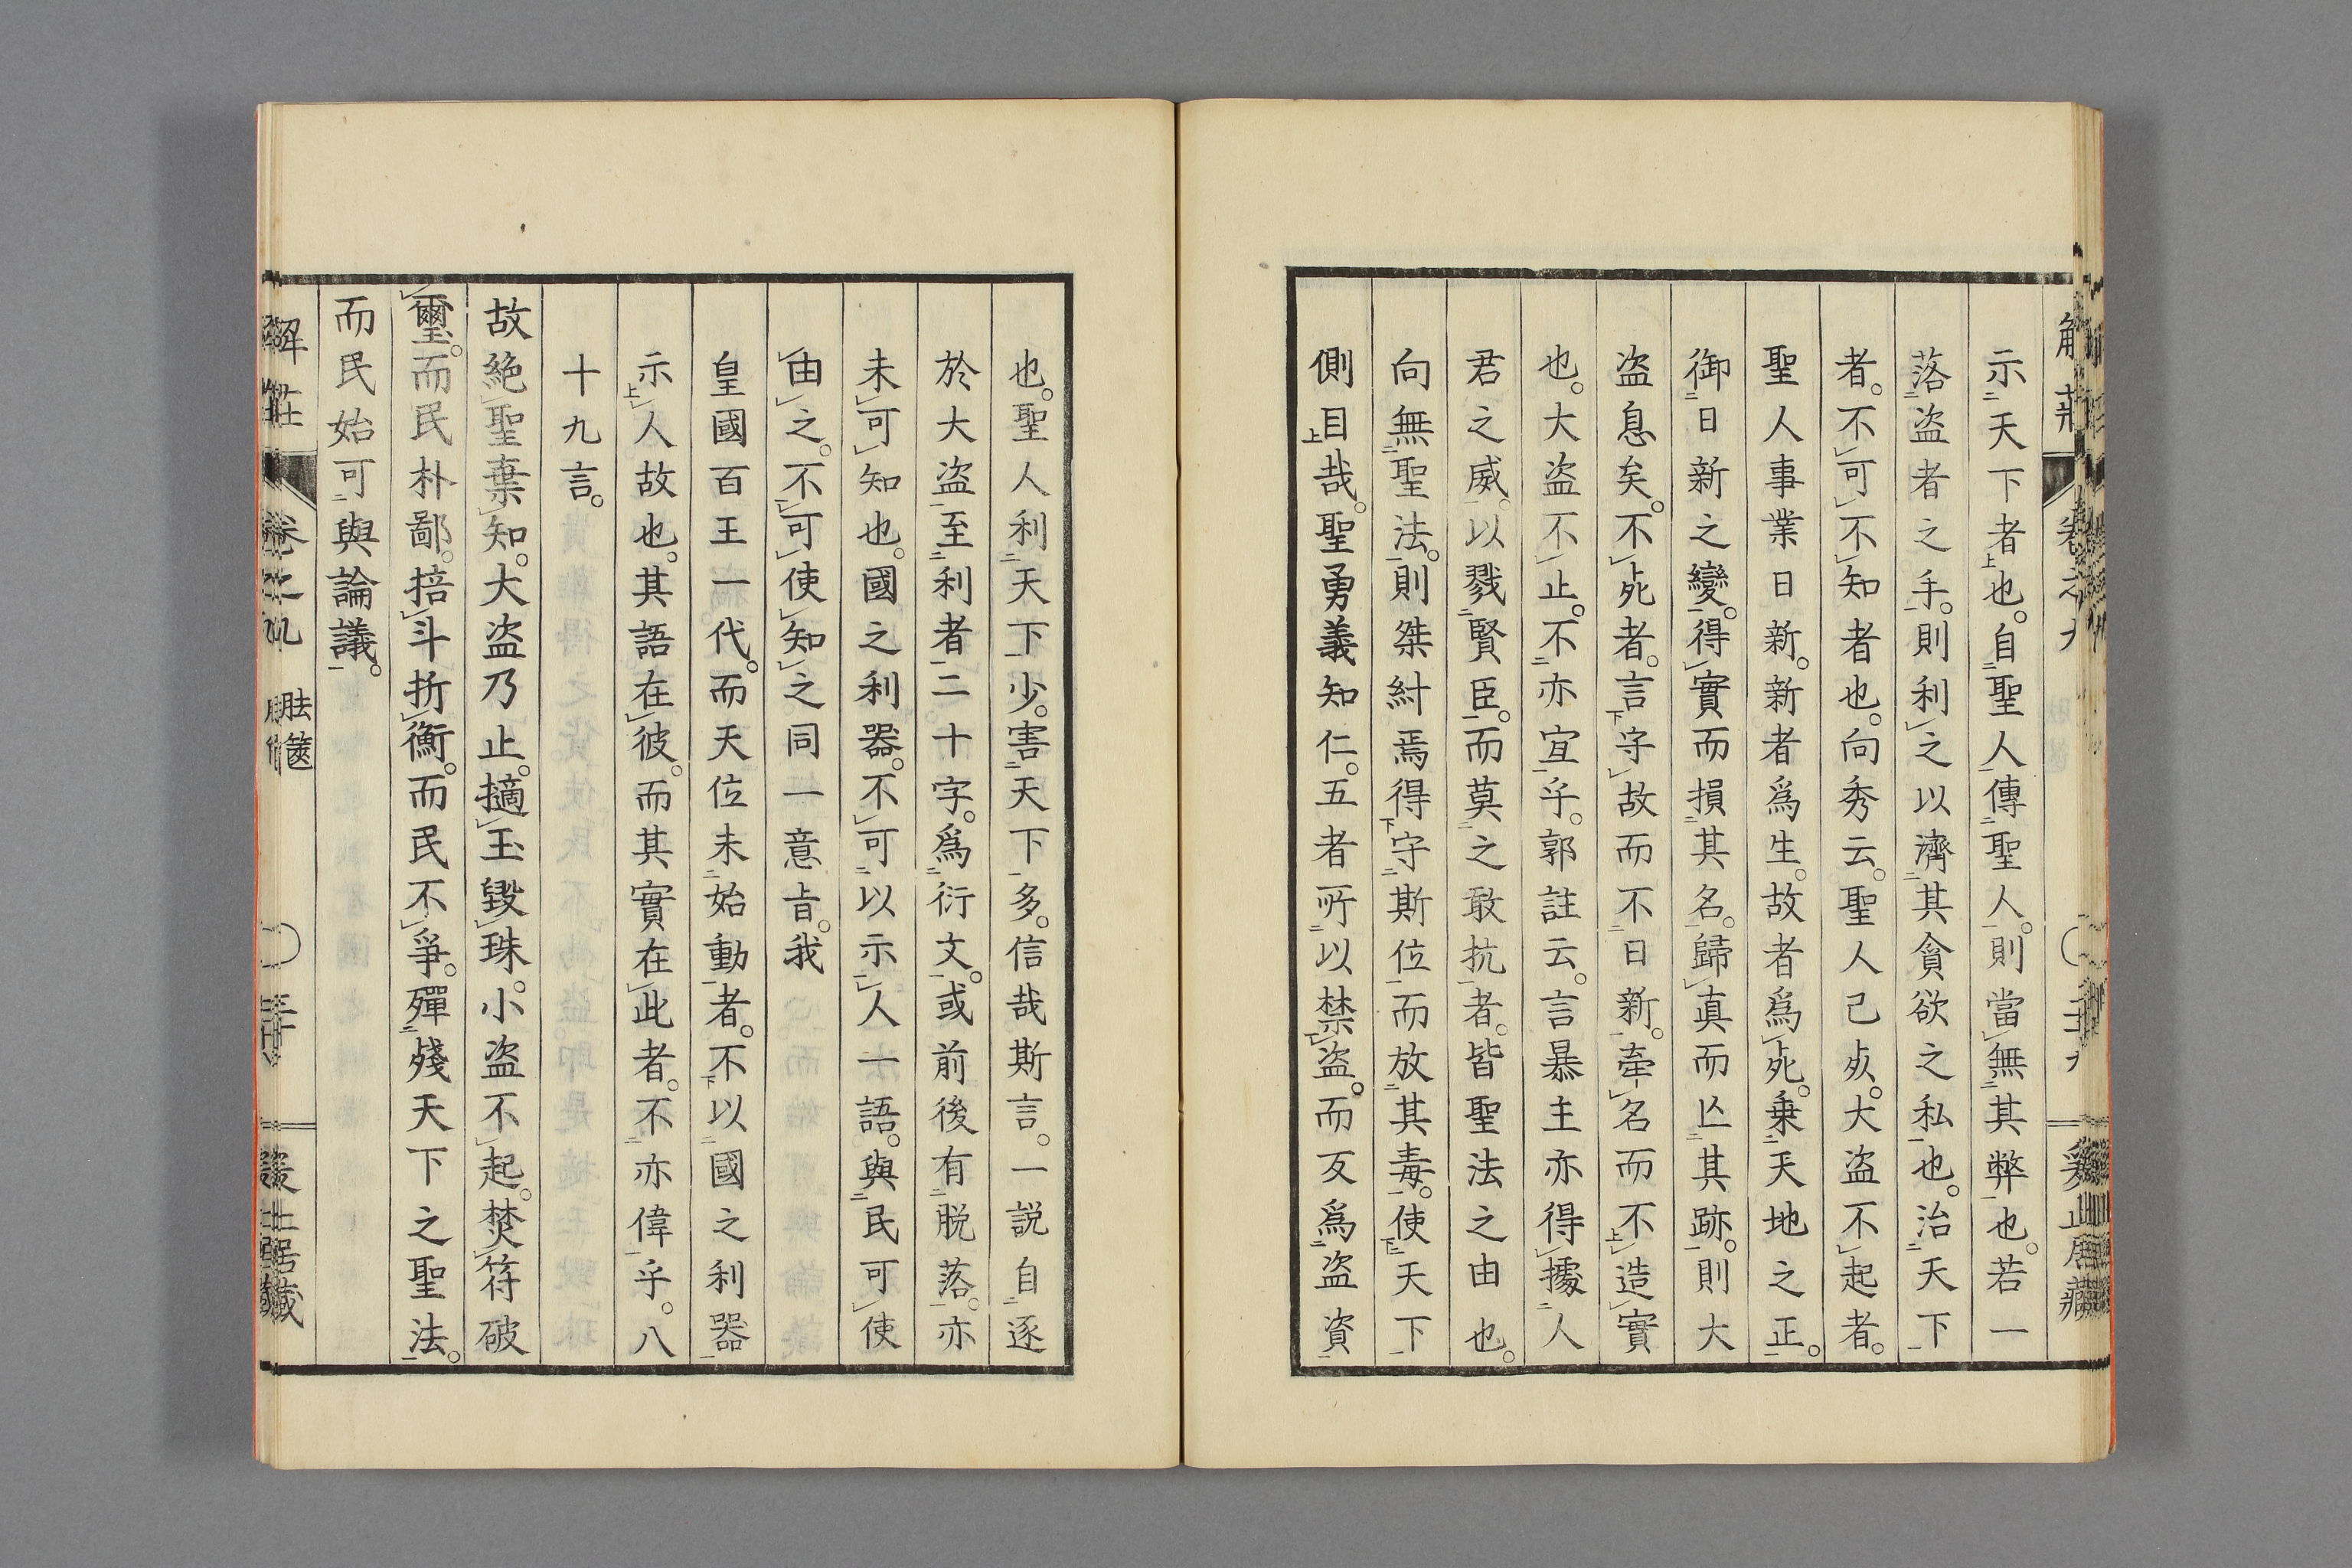 示天下者也。自聖人傳聖人。則當無其弊也。若一
落盜者之手。則利之以濟其貪欲之私也。治天下
者。不可不知者也。向秀云。聖人已死。大盜不起者。
聖人事業日新。新者爲生。故者爲死。乗天地之正。
御日新之變。得實而損其名。歸真而亾其跡。則大
盜息矣。不死者。言守故而不日新。牽名而不造實
也。大盜不止。不亦宜乎。郭註云。言暴主亦得據人
君之威。以戮賢臣。而莫之敢抗者。皆聖法之由也。
向無聖法。則桀紂焉得守斯位而放其毒。使天下
側目哉。聖勇義知仁。五者所以禁盜。而反爲盜資
也。聖人利天下少。害天下多。信哉斯言。一説自逐
於大盜至利者二十字。爲衍文。或前後有脱落。亦
未可知也。國之利器。不可以示人一語。與民可使
由之。不可使知之同一意旨。我
皇國百王一代。而天位未始動者。不以國之利器
示人故也。其語在彼。而其實在此者。不亦偉乎。八
十九言。
故絶聖棄知。大盜乃止。擿玉毀珠。小盜不起。焚符破
璽。而民朴鄙。掊斗折衡。而民不爭。殫殘天下之聖法。
而民始可與論議。
解莊
卷之九
胠篋